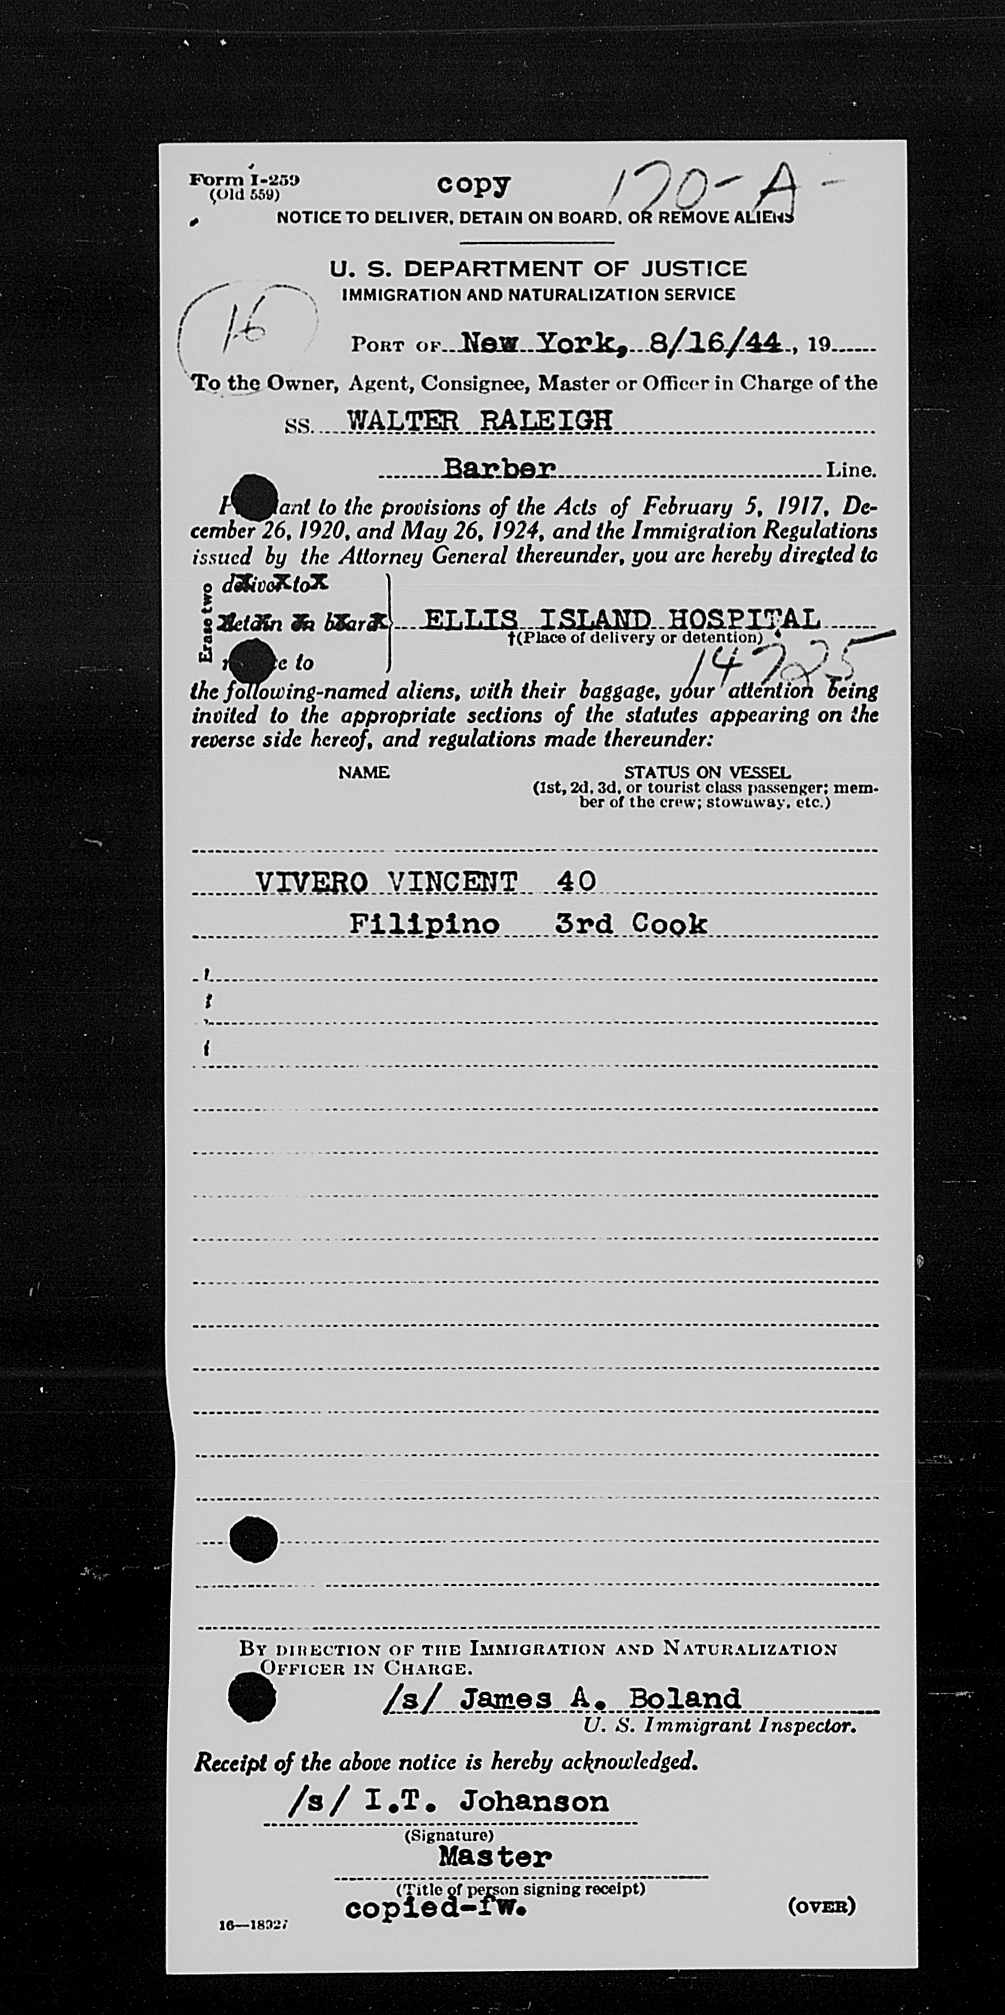 Form I-259
(Old 559)
copy
170-A-
NOTICE TO DELIVER, DETAIN ON BOARD, OR REMOVE ALIENS
U. S. DEPARTMENT OF JUSTICE
IMMIGRATION AND NATURALIZATION SERVICE
16
PORT OF New York, 8/16/44, 19
To the Owner, Agent, Consignee, Master or Officer in Charge of the
SS. WALTER RALEIGH
Barber Line.
ant to the provisions of the Acts of February 5, 1917, De-
cember 26, 1920, and May 26, 1924, and the Immigration Regulations
issued by the Attorney General thereunder, you are hereby directed to
Erase two
deliver to
detain on board
ELLIS ISLAND HOSPITAL
†(Place of delivery or detention)
e to
the following-named aliens, with their baggage, your attention being
invited to the appropriate sections of the statutes appearing on the
reverse side hereof, and regulations made thereunder:
NAME STATUS ON VESSEL
(1st, 2d, 3d, or tourist class passenger; mem-
ber of the crew; stowaway, etc.)
VIVERO VINCENT 40
Filipino 3rd Cook
BY DIRECTION OF THE IMMIGRATION AND NATURALIZATION
OFFICER IN CHARGE.
/s/ James A. Boland
U. S. Immigrant Inspector.
Receipt of the above notice is hereby acknowledged.
/s/ I.T. Johanson
(Signature)
Master
(Title of person signing receipt)
copied-fw.
(OVER)